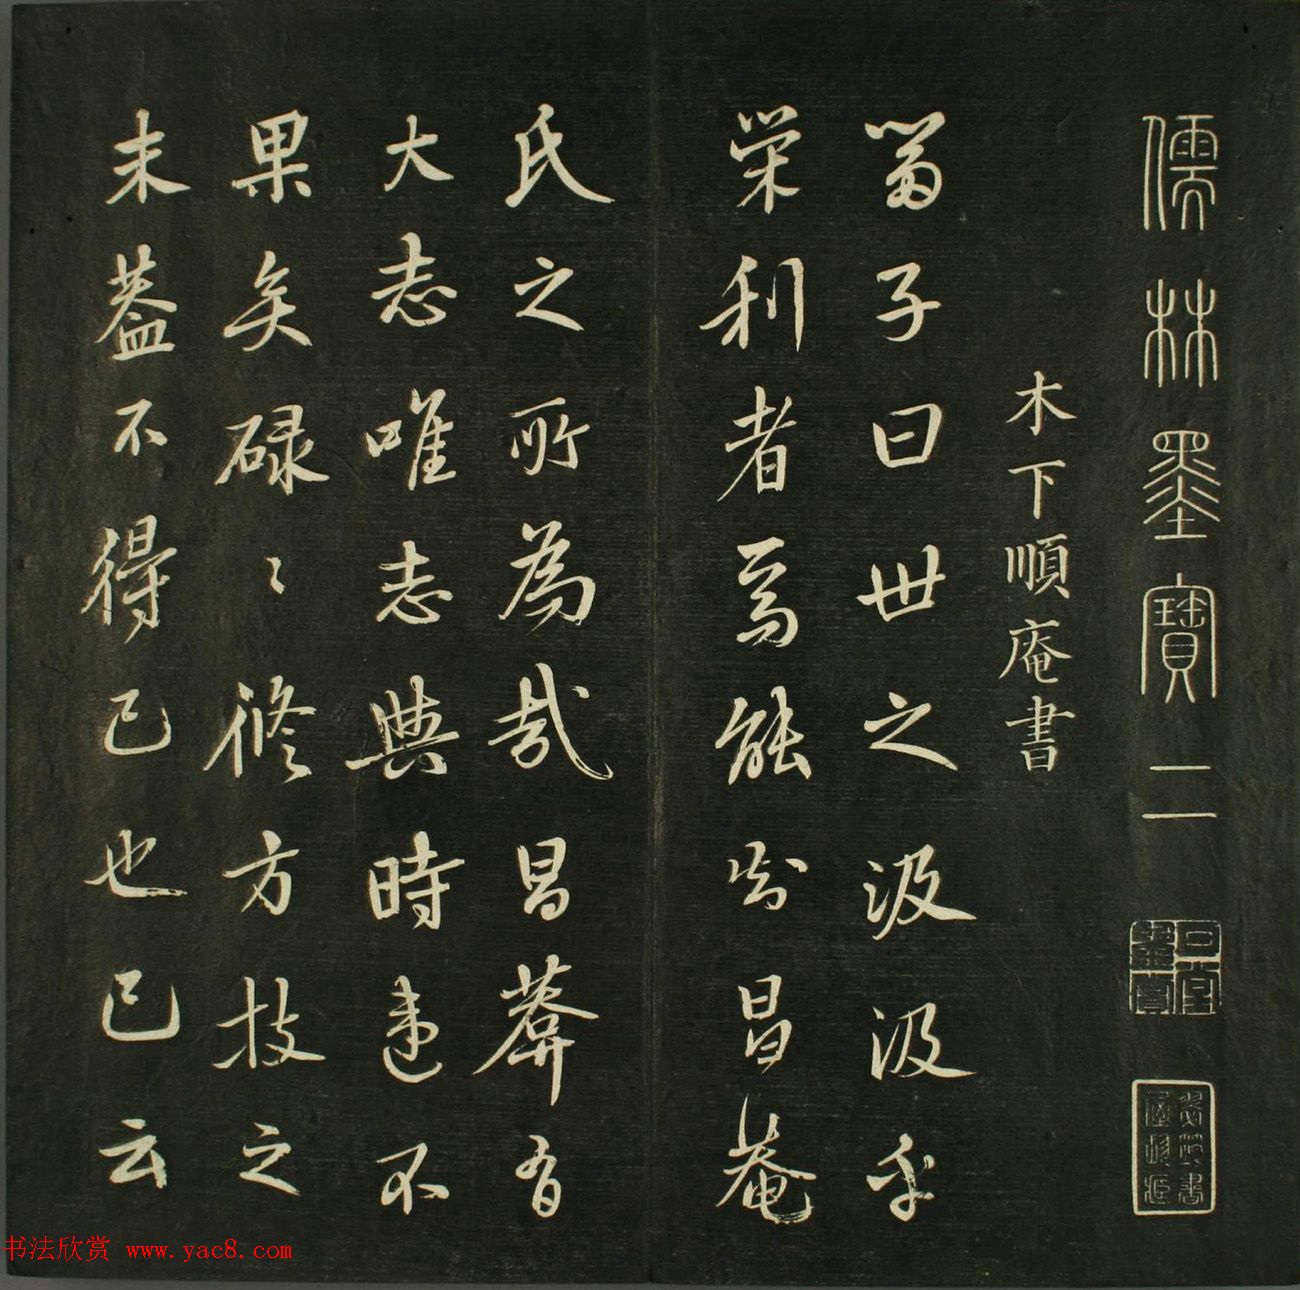 儒林墨寶二
木下順庵書
留子曰世之汲汲乎
榮利者焉能知昌菴
氏之所為哉昌葊有
大志唯志與時違不
果矣碌々修方技之
末蓋不得已也已云
书法欣赏 www.yac8.com